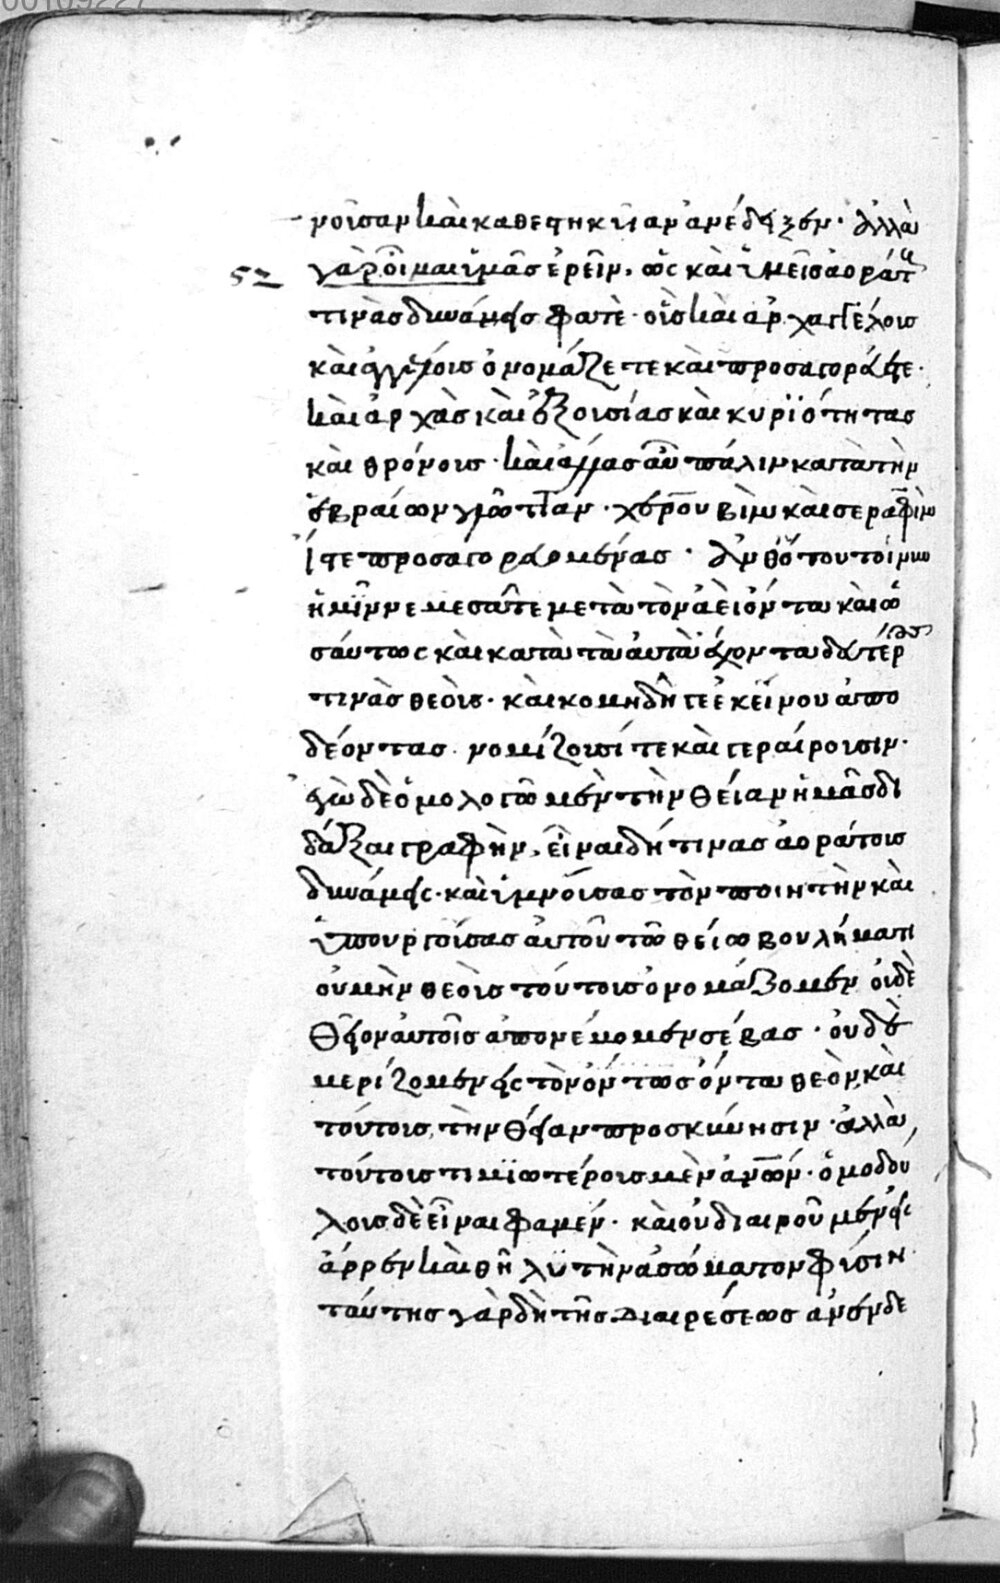 νοῦσαν καὶ καθεστηκυῖαν ἀνέδειξεν· ἀλλὰ
γὰρ οἶμαι ὑμᾶς ἐρεῖν, ὡς καὶ ὑμεῖς ἀοράτους
τινὰς δυνάμεις φατέ· οὓς καὶ ἀρχαγγέλους
καὶ ἀγγέλους ὀνομάζετε καὶ προσαγορεύετε·
καὶ ἀρχὰς καὶ ἐξουσίας καὶ κυριότητας
καὶ θρόνους· καὶ ἄλλας αὖ πάλιν κατὰ τὴν
ἑβραίων γλῶτταν· χερουβὶμ καὶ σεραφὶμ
ἴστε προσαγορευομένας· ἀνθότου τοίνυν
ἡμῖν νεμεσᾶτε μετὰ τὸν ἀεὶ ὄντα καὶ ὡ
σαύτως καὶ κατὰ τὰ αὐτὰ ἔχοντα δευτέρους
τινὰς θεοὺς· καὶ κομηδῆ γε ἐκείνου ἀπο
δέοντας νομίζουσί τε καὶ γεραίρουσιν·
ἐγὼ δὲ ὁμολογῶ μὲν τὴν θείαν ἡμᾶς δι
δάξαι γραφὴν, εἶναι δή τινας ἀοράτους
δυνάμεις· καὶ ὑμνούσας τὸν ποιητὴν καὶ
ὑπουργούσας αὐτοῦ τῶ θείω βουλήματι
οὐ μὴν θεοὺς τούτους ὀνομάζομεν οὐδὲ
θεῖον αὐτοῖς ἀπονέμομεν σέβας· οὐδὲ
μερίζομεν εἰς τὸν ὄντως ὄντα θεὸν καὶ
τούτους, τὴν θείαν προσκύνησιν· ἀλλὰ
τούτους τιμιωτέρους μὲν ἀνθρώπων· ὁμοδού
λους δὲ εἶναι φαμέν· καὶ οὐ διαιροῦμεν εἰς
ἄρρεν καὶ θῆλυ τὴν ἀσώματον φύσιν·
ταύτης γὰρ δὴ τῆς διαιρέσεως ἀνενδε